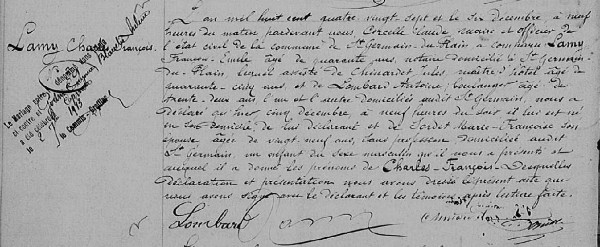 L'an mil huit cent quatre vingt sept et le six décembre à neuf
heures du matin pardevant nous, Corcelle Claude maire et officier de
l'état civil de la commune de St Germain-du-Plain a comparu Lamy
François Emile âgé de quarante ans, notaire domicilié à St Germain-
du-Plain lequel assisté de Chicardet Jules maître d'hôtel âgé de
quarante-cinq ans et de Lombard Antoine, boulanger âgé de
trente-deux ans l'un et l'autre domiciliés audit St Germain, nous a
déclaré qu'hier cinq décembre à neuf heures du soir il lui est né
en son domicile, de lui déclarant et de Sordet Marie-Françoise son
épouse, âgée de vingt neuf ans, sans profession domiciliée audit
St Germain un enfant du sexe masculin qu'il nous a présenté et
auquel il a donné les prénoms de Charles-François. Desquelles
déclaration et présentation nous avons dressé le présent acte que
nous avons signé avec le déclarant et les témoins après lecture faite.
Lombard Lamy
Lamy Charles
François.
Le mariage entre